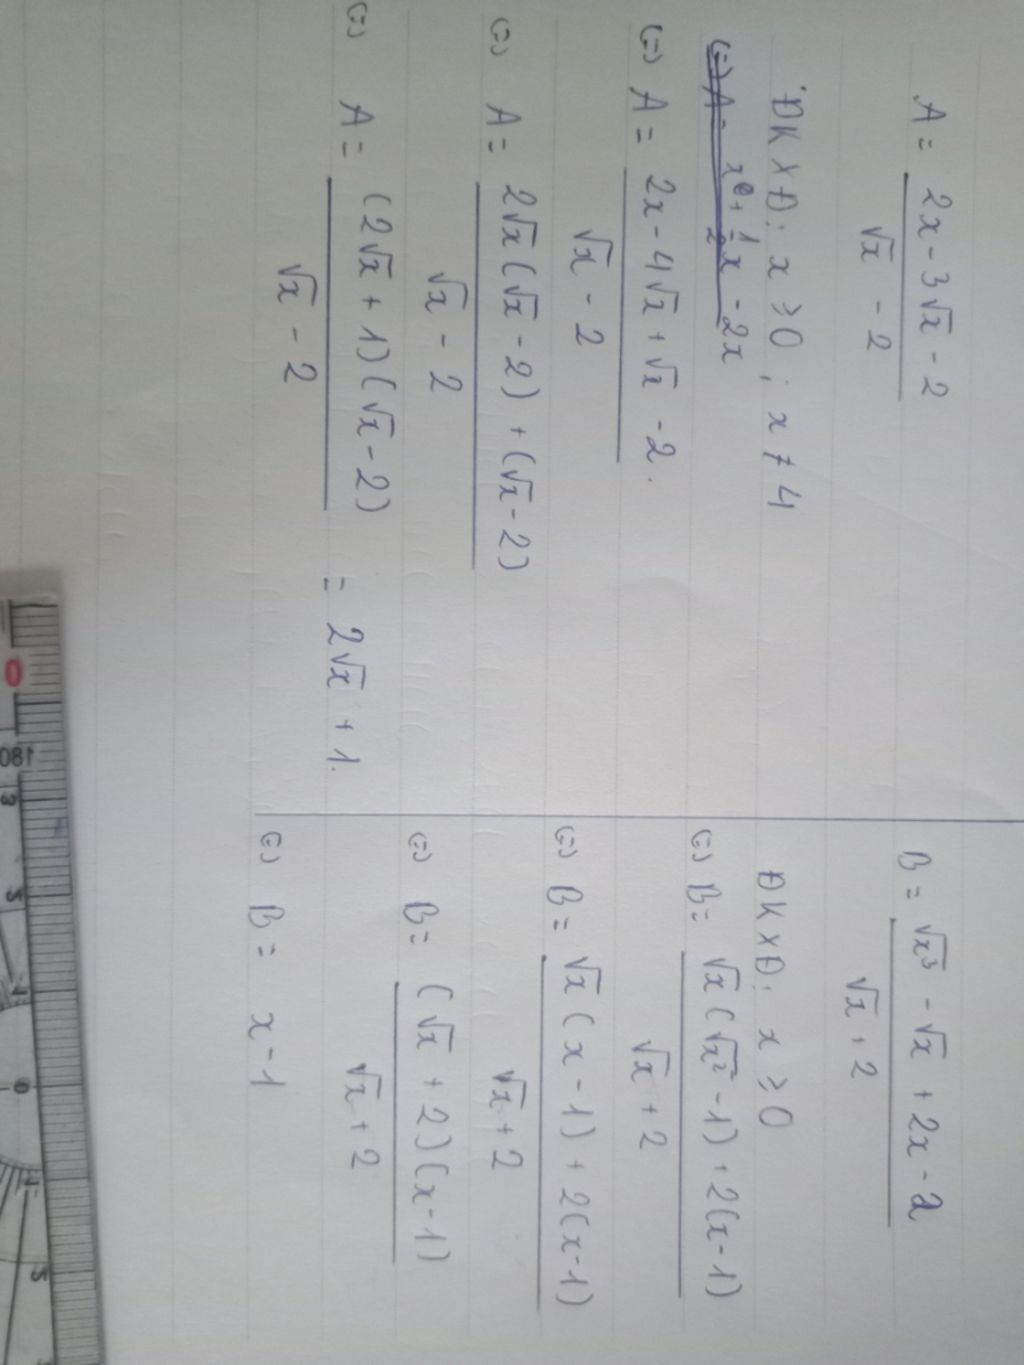 A = 2x - 3√x - 2
√x - 2
ĐKXĐ: x ≥ 0 ; x ≠ 4
(=) A = 2x - 4√x + √x - 2.
√x - 2
(=) A = 2√x(√x - 2) + (√x - 2)
√x - 2
(=) A = (2√x + 1)(√x - 2) = 2√x + 1.
√x - 2
B = √x³ - √x + 2x - 2
√x + 2
ĐKXĐ: x ≥ 0
(=) B = √x(√x² - 1) + 2(x - 1)
√x + 2
(=) B = √x(x - 1) + 2(x - 1)
√x + 2
(=) B = (√x + 2)(x - 1)
√x + 2
(=) B = x - 1
0
180